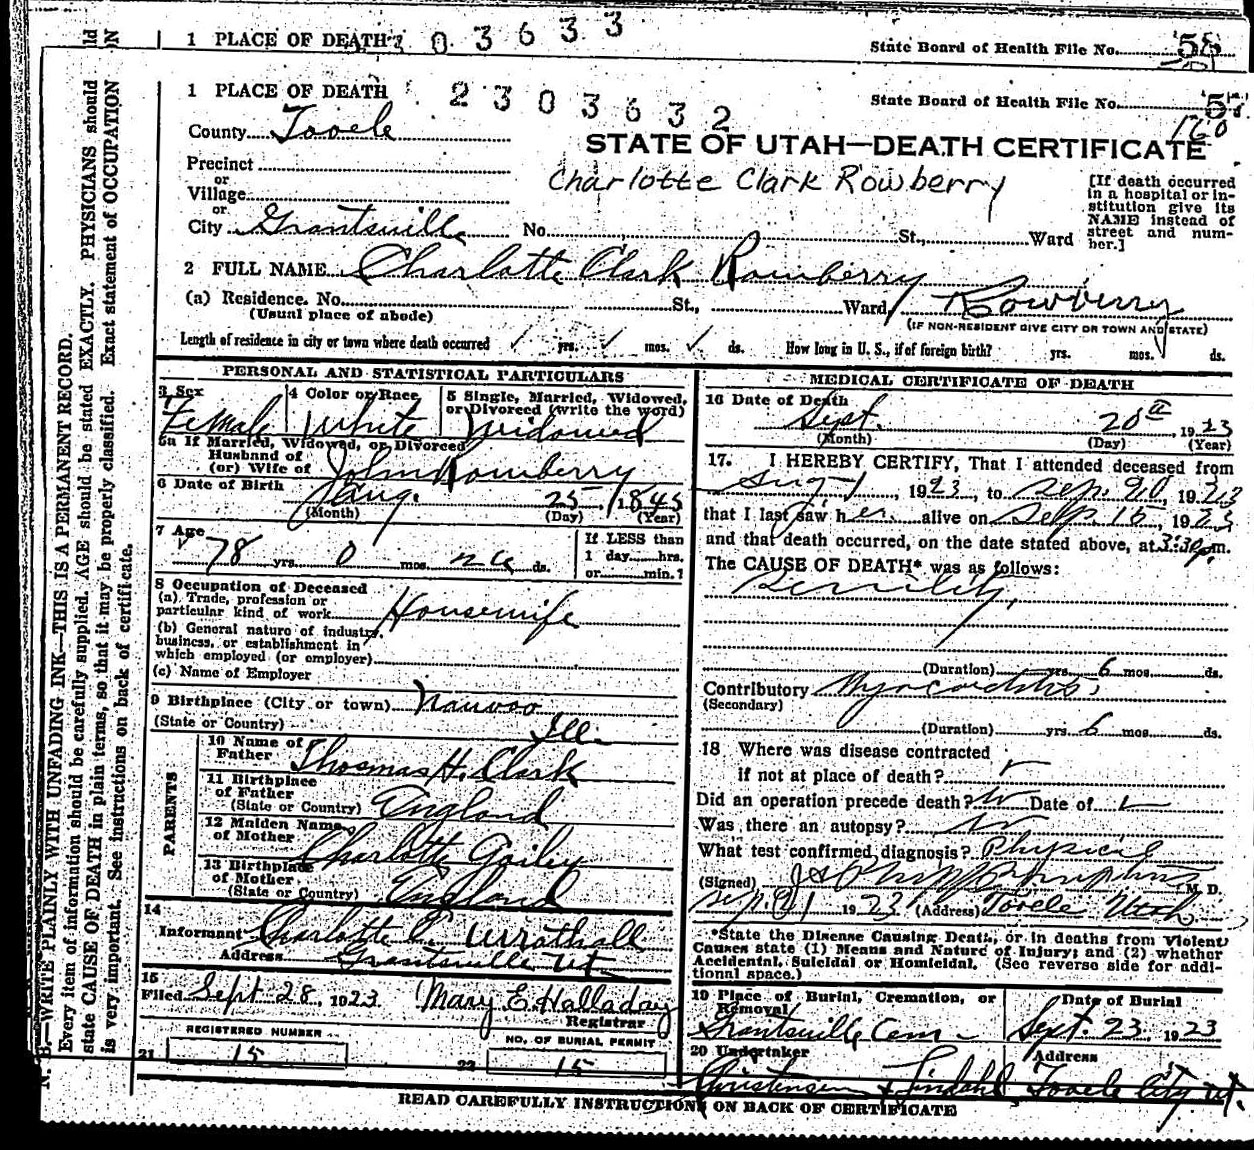 1 PLACE OF DEATH 2303633 State Board of Health File No. 58
1 PLACE OF DEATH 2303632 State Board of Health File No. 58
160
County Tooele
STATE OF UTAH—DEATH CERTIFICATE
Precinct
or
Village
or
Charlotte Clark Rowberry
[If death occurred in a hospital or institution give its NAME instead of street and number.]
City Grantsville No. St., Ward
2 FULL NAME Charlotte Clark Rowberry
(a) Residence. No. St., Ward, Rowberry
(Usual place of abode) (IF NON-RESIDENT GIVE CITY OR TOWN AND STATE)
Length of residence in city or town where death occurred yrs. mos. ds. How long in U. S., if of foreign birth? yrs. mos. ds.
PERSONAL AND STATISTICAL PARTICULARS
3 Sex 4 Color or Race 5 Single, Married, Widowed, or Divorced (write the word)
Female White Widowed
5a If Married, Widowed, or Divorced
Husband of
(or) Wife of John Rowberry
6 Date of Birth Aug. 25 1845
(Month) (Day) (Year)
7 Age
78 yrs. 0 mos. ds.
If LESS than
1 day hrs.
or min.?
8 Occupation of Deceased
(a) Trade, profession or
particular kind of work Housewife
(b) General nature of industry,
business, or establishment in
which employed (or employer)
(c) Name of Employer
9 Birthplace (City or town) Nauvoo
(State or Country) Ill.
PARENTS
10 Name of
Father Thomas H. Clark
11 Birthplace
of Father
(State or Country) England
12 Maiden Name
of Mother Charlotte Gailey
13 Birthplace
of Mother
(State or Country) England
14
Informant Charlotte C. Wrathall
Address Grantsville Ut
15
Filed Sept 28, 1923 Mary E. Halladay
Registrar
REGISTERED NUMBER NO. OF BURIAL PERMIT
21 15 22 15
MEDICAL CERTIFICATE OF DEATH
16 Date of Death
Sept. 20th, 1923
(Month) (Day) (Year)
17. I HEREBY CERTIFY, That I attended deceased from
Aug 1, 1923, to Sep. 20, 1923
that I last saw her alive on Sep. 15, 1923
and that death occurred, on the date stated above, at 3:30 p.m.
The CAUSE OF DEATH* was as follows:
Senility,
(Duration) yrs. 6 mos. ds.
Contributory Myocarditis,
(Secondary)
(Duration) yrs. 6 mos. ds.
18 Where was disease contracted
if not at place of death?
Did an operation precede death? No Date of
Was there an autopsy? No
What test confirmed diagnosis? Physical
(Signed) M. D.
Sep. 21 1923 (Address) Tooele Utah
*State the Disease Causing Death, or in deaths from Violent
Causes state (1) Means and Nature of Injury; and (2) whether
Accidental, Suicidal or Homicidal. (See reverse side for addi-
tional space.)
19 Place of Burial, Cremation, or Removal Date of Burial
Grantsville Cem Sept. 23, 1923
20 Undertaker Address
Christensen & Lindahl Tooele City Ut.
READ CAREFULLY INSTRUCTIONS ON BACK OF CERTIFICATE
N. B.—WRITE PLAINLY WITH UNFADING INK—THIS IS A PERMANENT RECORD.
Every item of information should be carefully supplied. AGE should be stated EXACTLY. PHYSICIANS should
state CAUSE OF DEATH in plain terms, so that it may be properly classified. Exact statement of OCCUPATION
is very important. See instructions on back of certificate.